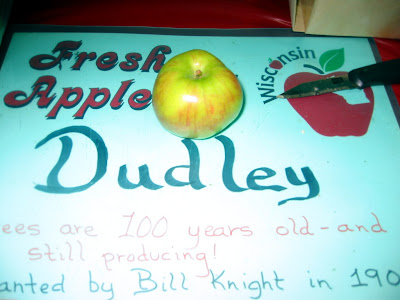 Fresh
Apple
Wisconsin
Dudley
ees are 100 years old - and
still producing!
anted by Bill Knight in 190